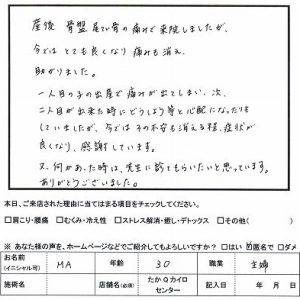 産後 骨盤 尾てい骨の痛みで来院しましたが、
今では とても良くなり 痛みも消え、
助かりました。
一人目の子の出産で痛みが出てしまい、次、
二人目が出来た時にどうしよう等と心配になったりも
していましたが、今ではその不安も消える程、症状が
良くなり、感謝しています。
又、何かあった時は、先生に診てもらいたいと思っています。
ありがとうございました。
本日、ご来店された理由に当てはまる項目をチェックしてください。
□肩こり・腰痛 □むくみ・冷え性 □ストレス解消・癒し・デトックス □その他( )
※あなた様の声を、ホームページなどでご紹介してもよろしいですか? □はい ☑匿名で □ダメ
お名前 (イニシャル可) MA 年齢 30 職業 主婦
施術名 店舗名(必須) たかQカイロセンター 記入日 年 月 日